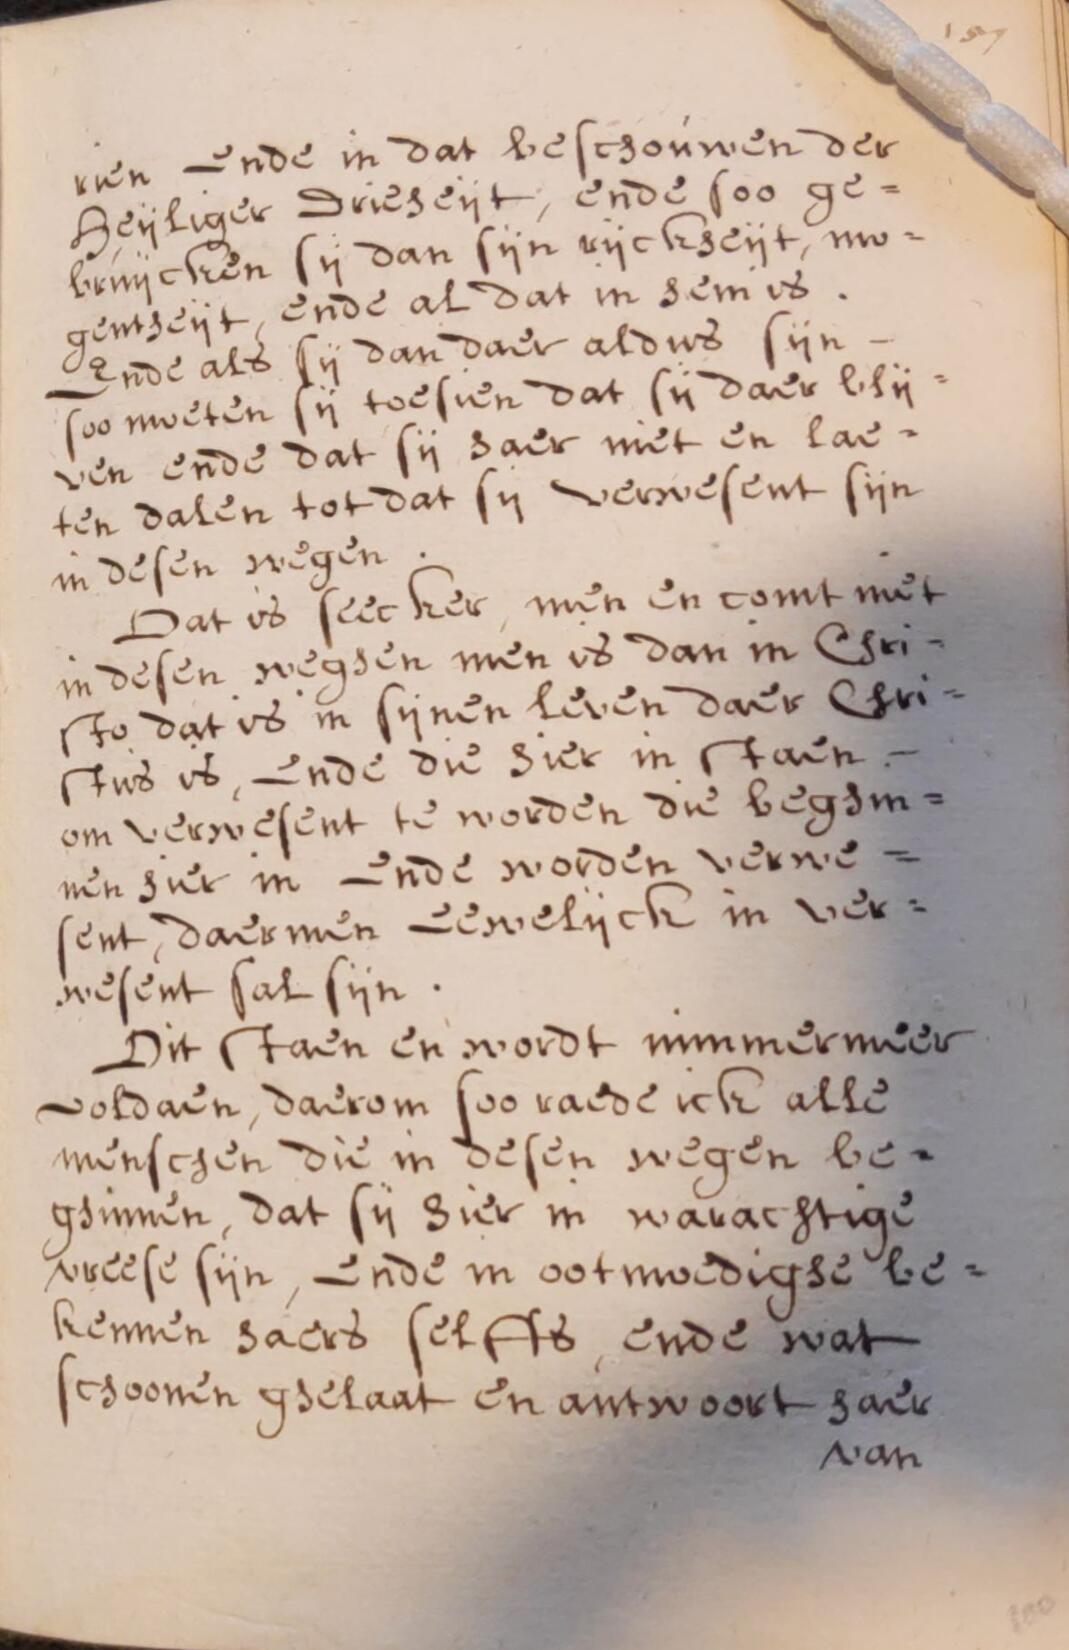 rien Ende in dat beschouwen der
Heyliger Drieheijt, ende soo ge=
bruijcken sij dan sijn rijckheijt, mo=
gentheijt, ende al dat in hem is.
Ende als sij dan daer aldus sijn -
soo moeten sij toesien dat sij daer blij=
ven ende dat sij haer niet en lae=
ten dalen tot dat sij verwesent sijn
in desen wegen.
Dat is seecker, men en comt niet
in desen weghen men is dan in Chri=
sto dat is in sijnen leven daer Chri=
stus is, Ende die hier in staen -
om verwesent te worden die beghin=
nen hier in Ende worden verwe=
sent, daermen Eewelijck in ver=
wesent sal sijn.
Dit staen en wordt nimmermeer
voldaen, daerom soo raede ick alle
menschen die in desen wegen be=
ghinnen, dat sij hier in warachtige
vreese sijn, Ende in ootmoedighe be=
kennen haers selffs, ende wat
schoonen ghelaat en antwoort haer
van